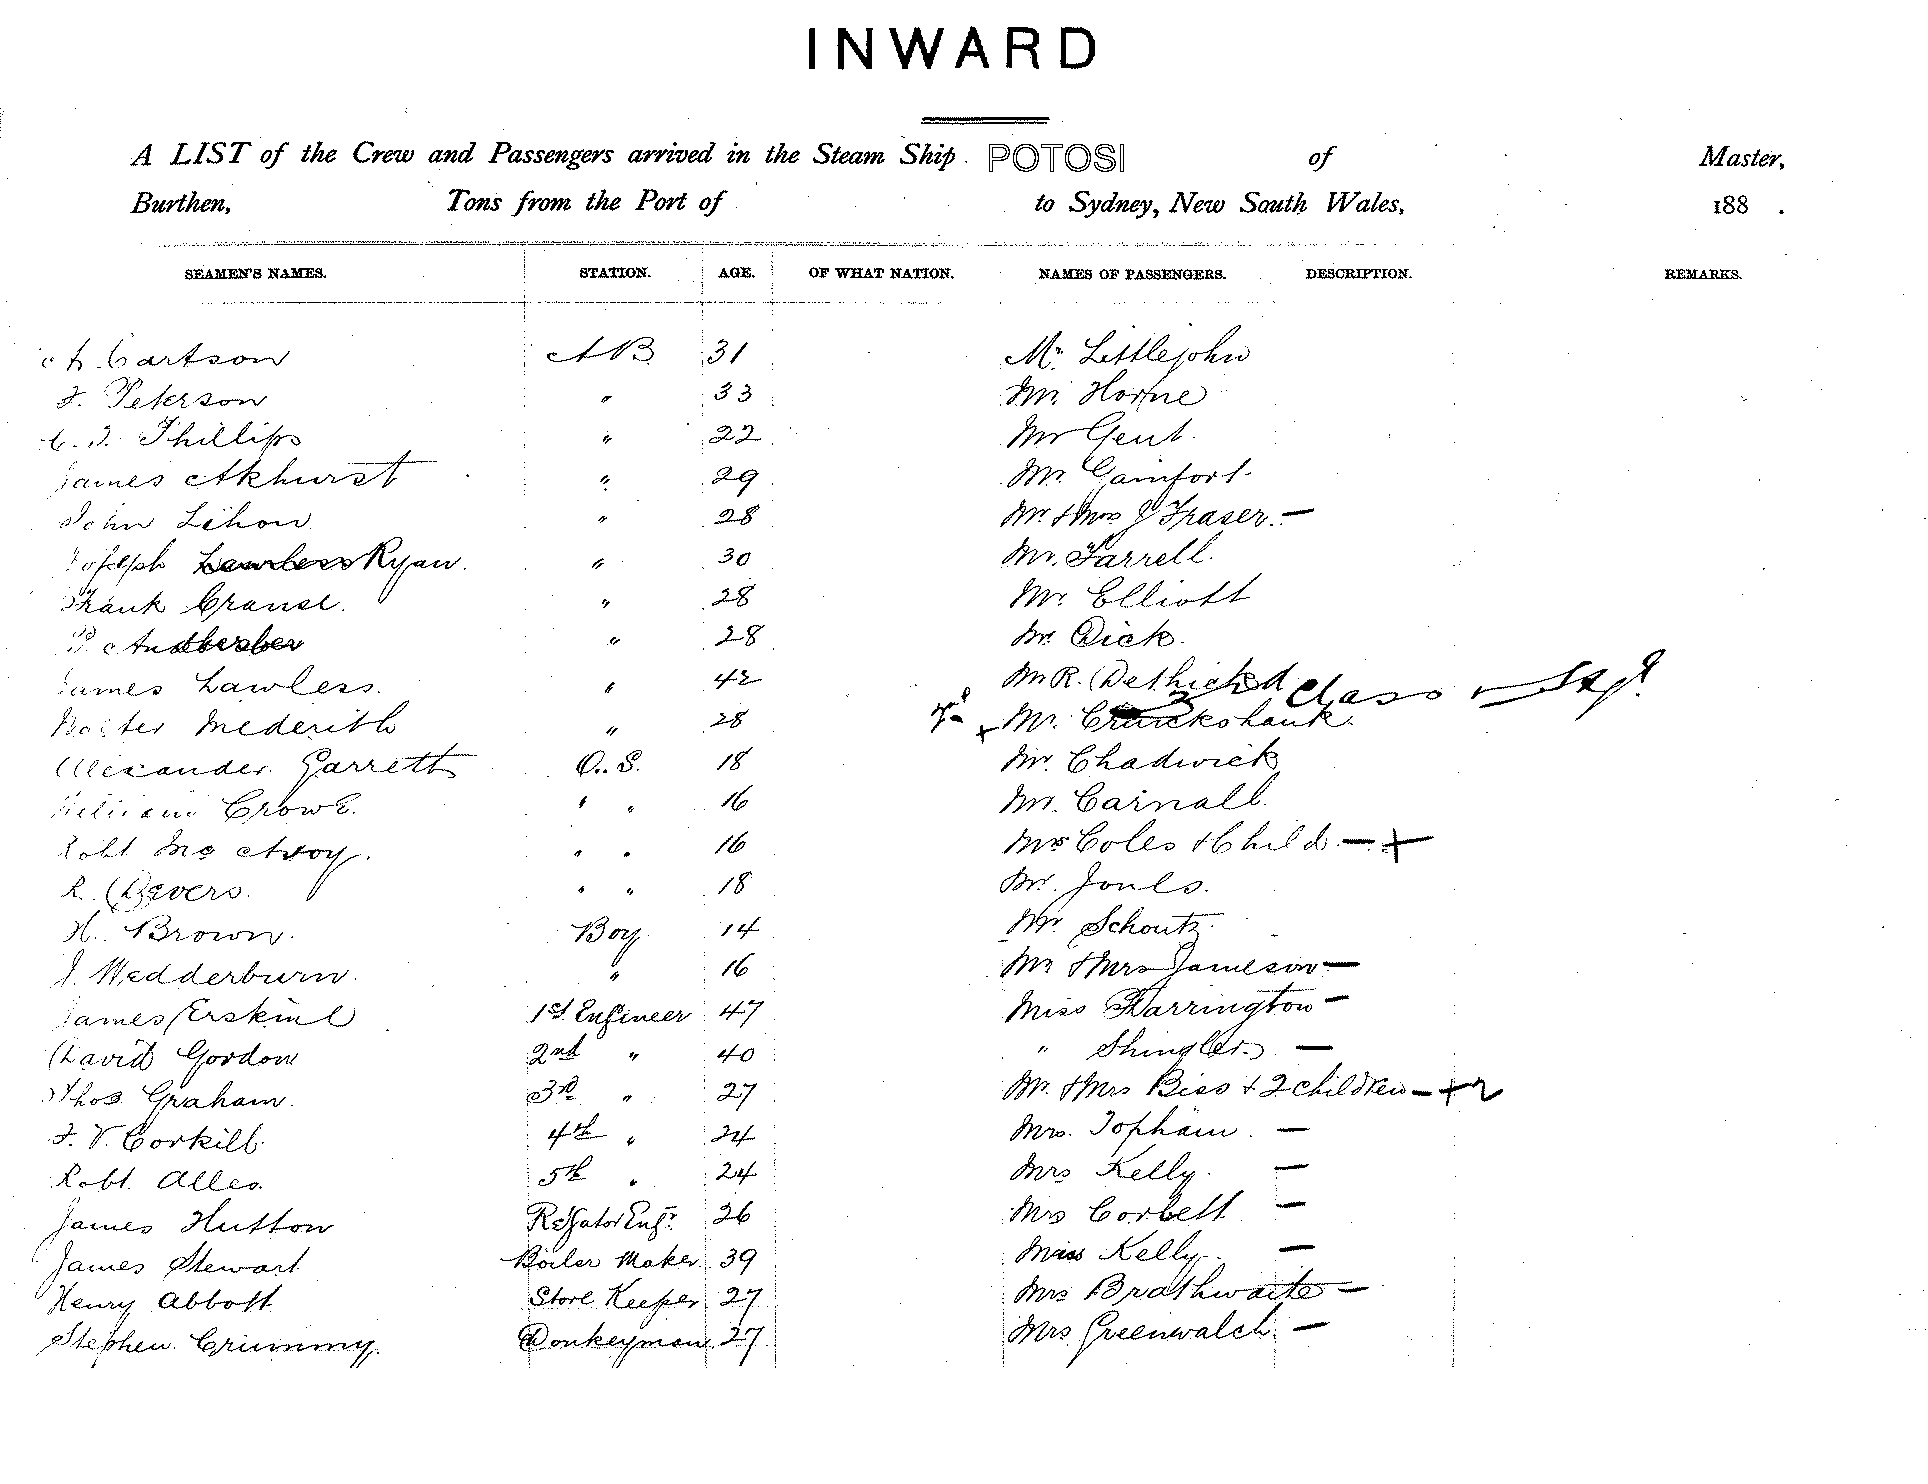 INWARD
A LIST of the Crew and Passengers arrived in the Steam Ship POTOSI of Master,
Burthen, Tons from the Port of to Sydney, New South Wales, 188 .
SEAMEN'S NAMES. STATION. AGE. OF WHAT NATION. NAMES OF PASSENGERS. DESCRIPTION. REMARKS.
A. Cartson AB 31 Mr. Littlejohn
J. Peterson " 33 Mr. Horne
C. J. Phillips " 22 Mr Gent.
James Akhurst " 29 Mr. Gainfort.
John Lihou " 28 Mr. & Mrs J Fraser. —
Joseph Lawless Ryan. " 30 Mr. Farrell.
Frank Crause. " 28 Mr. Elliott
P. " 28 Mr. Dick.
James Lawless. " 42 Mr R. Dethick 2nd Class
Walter Mederith " 28 + Mr. Cruickshank.
Alexander Garrett O. S. 18 Mr. Chadwick
William Crowe. " " 16 Mr. Carnall.
Robt Mc Avoy. " " 16 Mrs Coles & Child — +
R. Devers. " " 18 Mr. Jones.
H. Brown. Boy 14 Mr. Schoutz.
J. Wedderburn. " 16 Mr & Mrs Jameson —
James Erskine 1st Engineer 47 Miss Harrington —
David Gordon 2nd " 40 " Shingler. —
Thos. Graham. 3rd " 27 Mr. & Mrs Biss & 2 children — + 2
J. V. Corkill. 4th " 24 Mrs. Topham. —
Robt. Alles. 5th " 24 Mrs Kelly. —
James Hutton Refgator Engr. 26 Mrs Corbett —
James Stewart Boiler Maker. 39 Miss Kelly. —
Henry Abbott Store Keeper. 27 Mrs Brathwaite —
Stephen Crimmy. Donkeyman. 27 Mrs Greenwalch. —